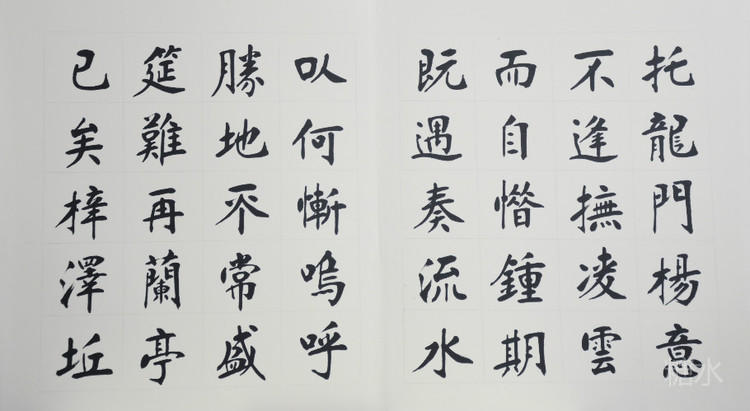 托龍門楊意
不逢撫凌雲
而自惜鍾期
既遇奏流水
以何慚嗚呼
勝地不常盛
筵難再蘭亭
已矣梓澤坵
糖水